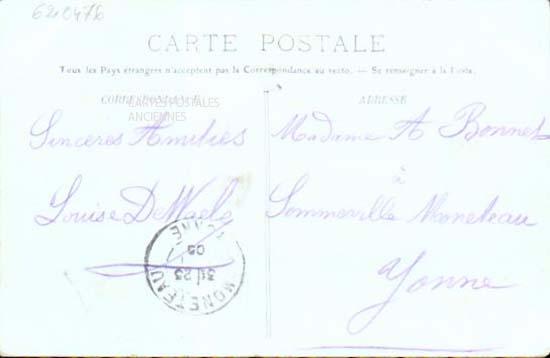 6210476
CARTE POSTALE
Tous les Pays étrangers n'acceptent pas la Correspondance au recto. — Se renseigner à la Poste.
CORRESPONDANCE
ADRESSE
CARTES POSTALES
ANCIENNES
Sincères Amitiés
Louise DeWaele
Madame A Bonnet
à
Sommeville Moneteau
Yonne
MONETEAU
31 23
05
YONNE